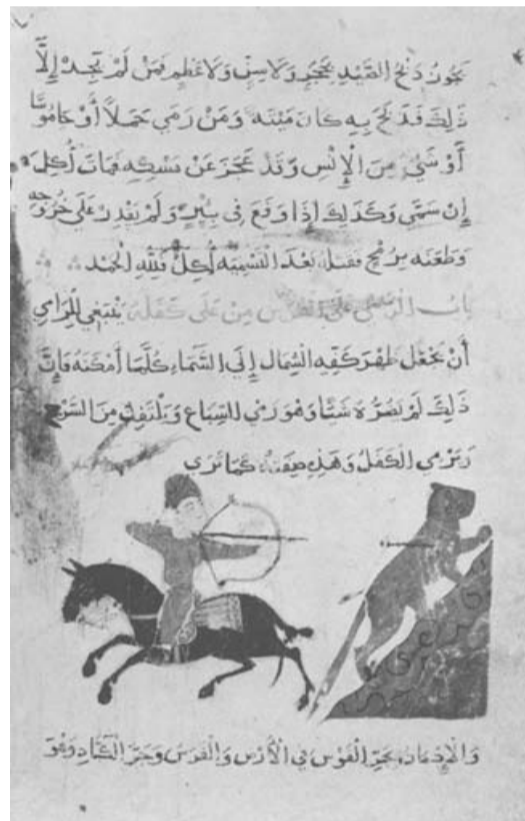 يجوز ذبح الصيد بحجر ولا سن ولا عظم فمن لم يجد إلّا
ذلك فذبح به كان ميتة ومن رمى جملاً أو جاموسًا
أو شيء من الإنس وقد عجز عن مسكه فمات أكل
إن سمّى وكذلك إذا وقع في بئر ولم يقدر على خروجه
وطعنه برمح فقتله بعد التسمية أكل ولله الحمد
باب الرمي على الفرس من على كفله ينبغي للرامي
أن يجعل ظهر كفه الشمال إلى السماء كلما أمكنه فإن
ذلك لم يضره شيئًا وهو رمي السباع ويلتفت من السرج
ويرمي الكفل وهذه صفته كما ترى
والإدمان بجرّ القوس في الأرض والفرس وجرّ الكباد وهو